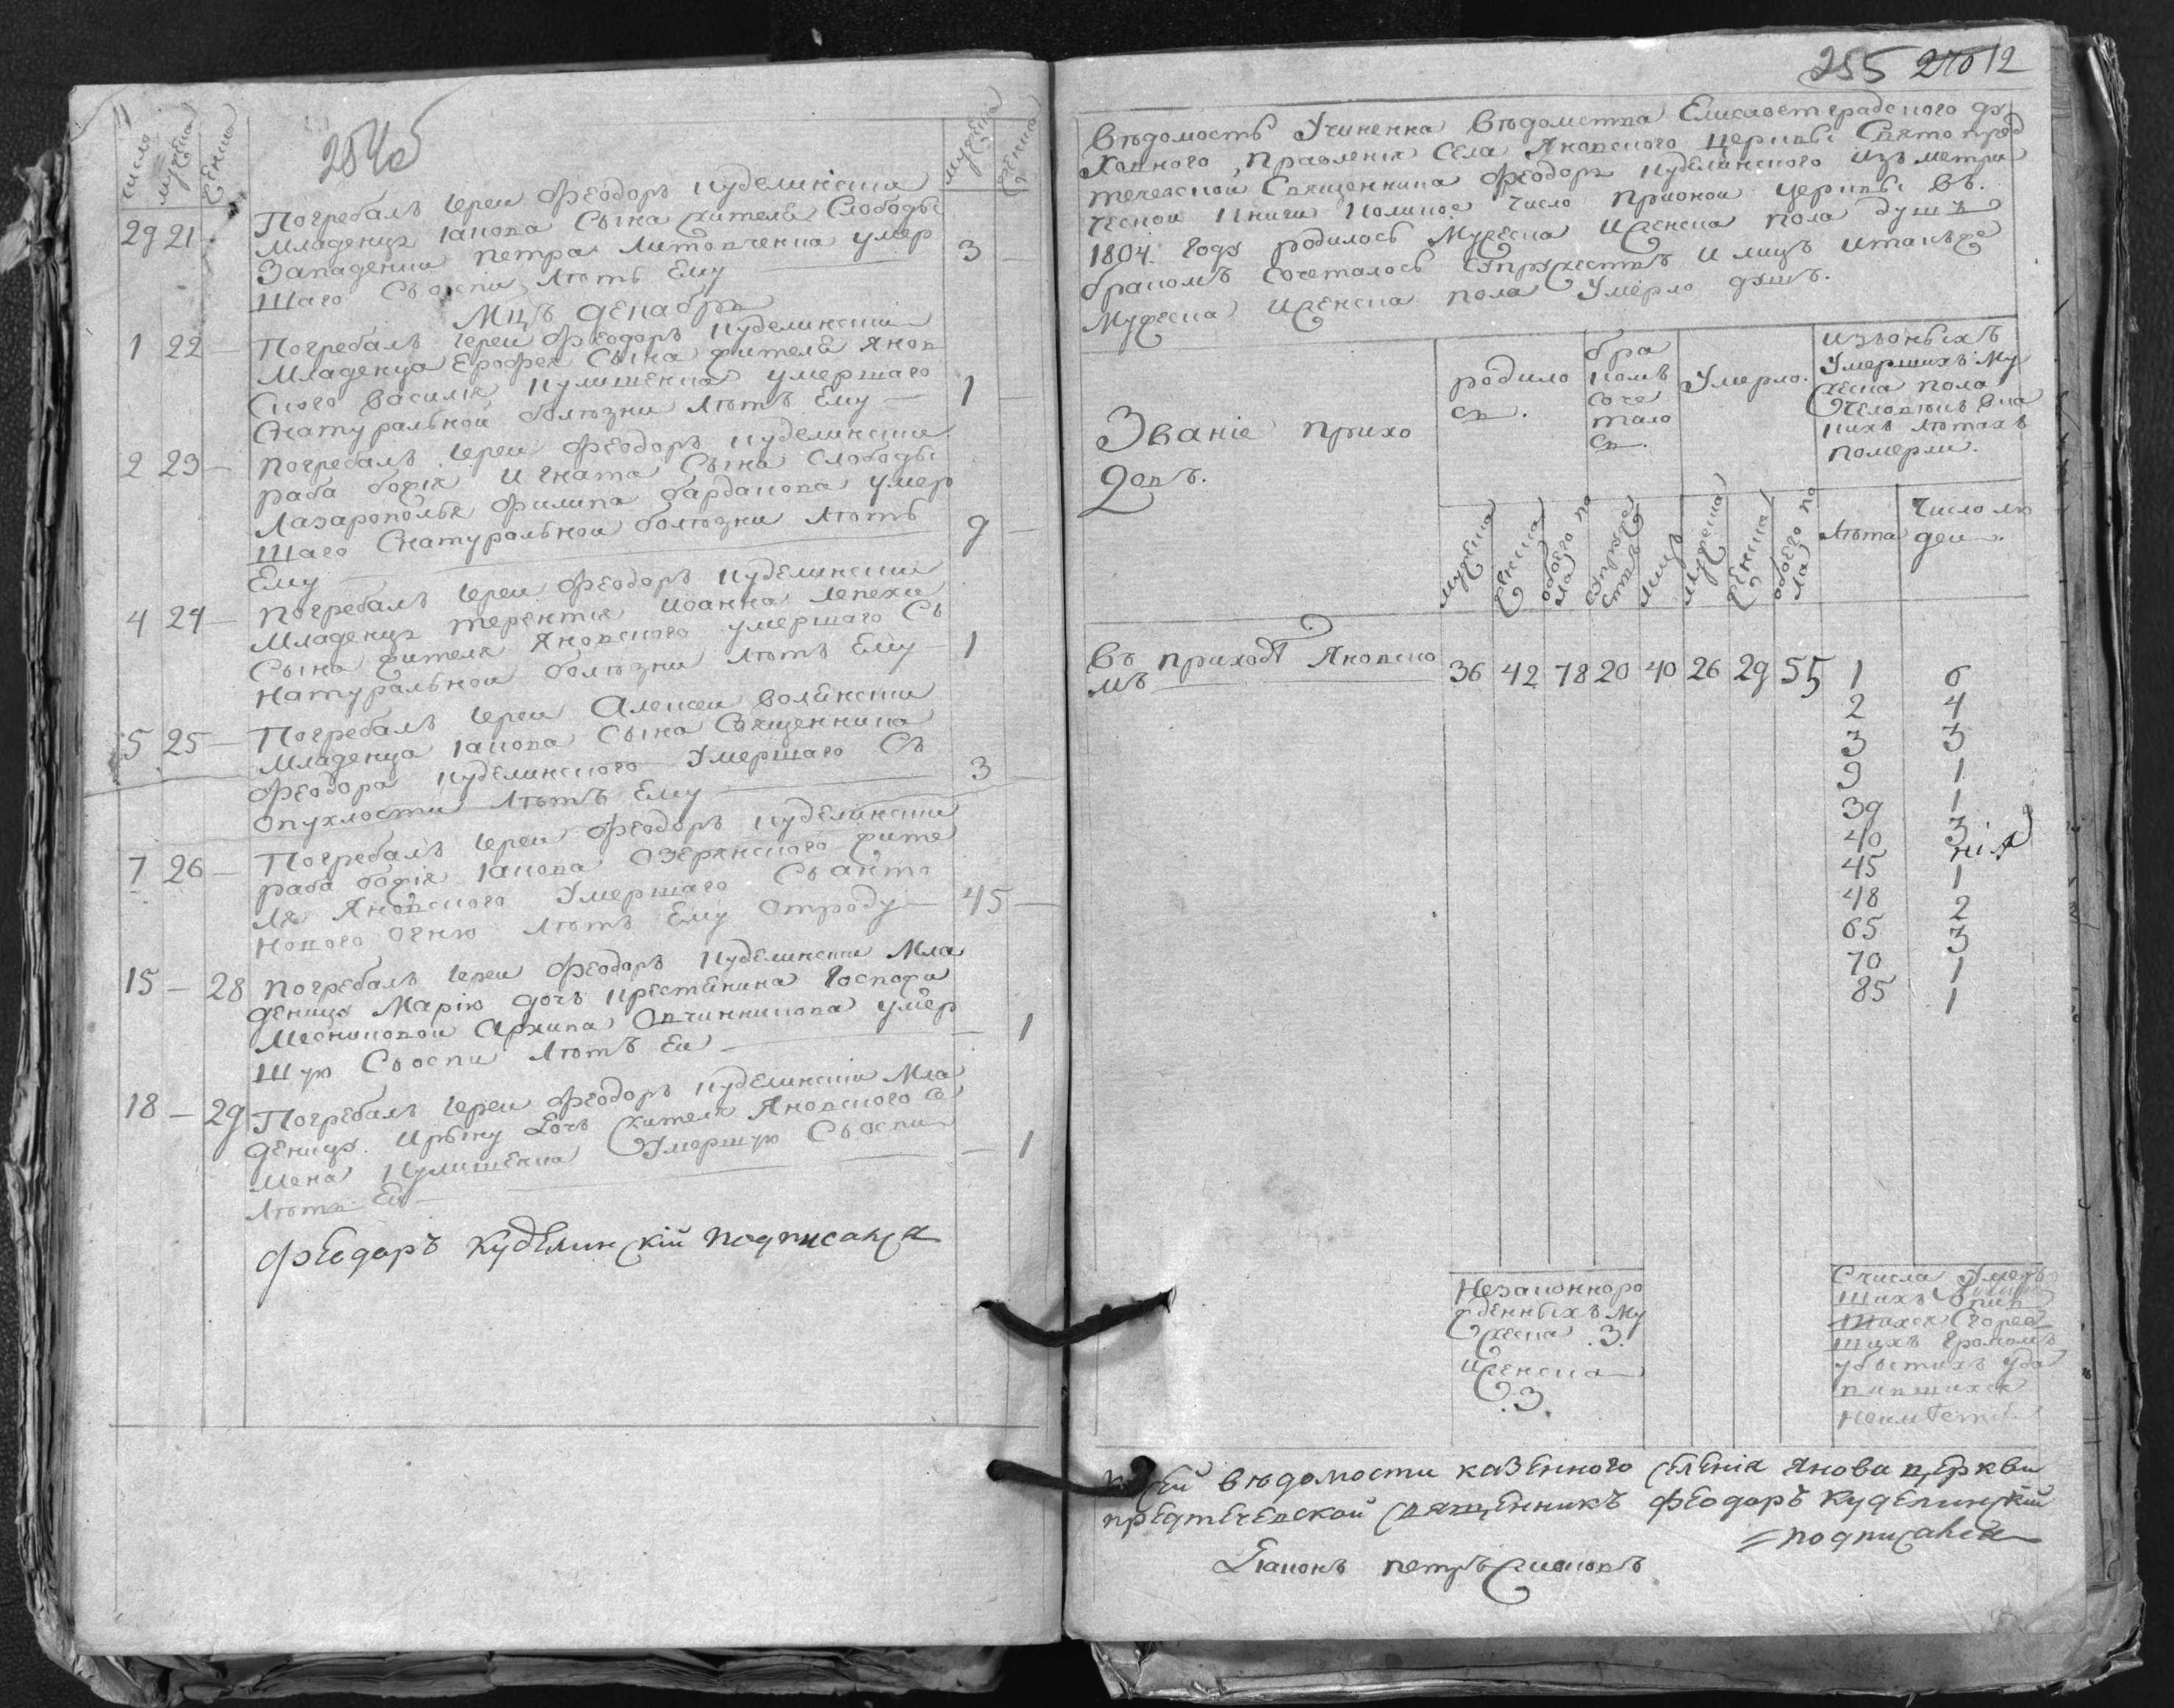 число мужеска женска
254об
мужеска женска
29 21 Погребалъ Іереи Феодоръ Куделинскии
младенца Іакова Сына жителя Слободы
Западенки Петра Литовченка умер
шаго Съ оспи Лѣтъ Ему 3
Мцъ декабрь
1 22 Погребалъ Іереи Феодоръ Куделинскии
младенца Ерофея Сына жителя Янов
ского Василя Кулишенка умершаго
Снатуральной болѣзни Лѣтъ Ему 1
2 23 Погребалъ Іереи Феодоръ Куделинскии
раба божія Игната Сына Слободы
Лазарополья Филипа Барданова умер
шаго Снатуральной болѣзни Лѣтъ
Ему 9
4 24 Погребалъ Іереи Феодоръ Куделинскии
младенца Терентія Иоанна Лепехи
Сына жителя Яновского умершаго Съ
натуральной болѣзни Лѣтъ Ему 1
5 25 Погребалъ Іереи Алексеи Волѣнскии
младенца Іакова Сына Священника
Феодора Куделинского Умершаго Съ
опухлости Лѣтъ Ему 3
7 26 Погребалъ Іереи Феодоръ Куделинскии
раба божія Іакова Озерянского жите
ля Яновского Умершаго Съ анто
нового огню Лѣтъ Ему отроду 45
15 — 28 Погребалъ Іереи Феодоръ Куделинскии Мла
денца Марію дочъ Крестянина Госпожи
Архипа Овчинникова умер
шую Съоспи Лѣтъ Еи 1
18 — 29 Погребалъ Іереи Феодоръ Куделинскии Мла
денца Ирыну дочъ жителя Яновского Се
мена Кулишенка Умершую Съоспи
Лѣтъ Еи 1
Феодоръ Куделинскій подписался
255 12
Вѣдомость Учиненна Вѣдомства Елисаветградского ду
ховного Правленія Села Яновского Церкви Святопред
теческой Священника Феодора Куделинского Изъ метри
ческой Книги Коликое число Прионой церквы въ.
1804. Году родилось Мужеска Иженска пола душъ
бракомъ Сочеталось Супружествъ И лицъ Итакъже
Мужеска Иженска пола Умерло душъ.
Званіе прихо
довъ.
родило
ся.
бра
комъ
соче
тало
ся.
Умерло.
Изъоныхъ
Умершихъ Му
жеска пола
Человѣкъ Вка
кихъ Лѣтахъ
померли.
мужеска
женска
обоего по
ла
супруже
ствъ
лицъ
мужеска
женска
обоего по
ла
Лѣта
Число лю
деи.
Въ приходѣ Яновско
мъ 36 42 78 20 40 26 29 55 1 6
2 4
3 3
9 1
39 1
40 3
45
48 1
65 2
70 3
85 1
1
Незаконноро
жденныхъ Му
жеска .3.
Иженска
.3.
Счисла Умер
шихъ
шихся Сгорев
шихъ Громомъ
убытихъ Уда
вившихся
Неимѣется
Ксей вѣдомости казенного селенія Янова церкви
предтечевской священникъ Феодоръ Куделинскій
подписался
Діаконъ Петръ